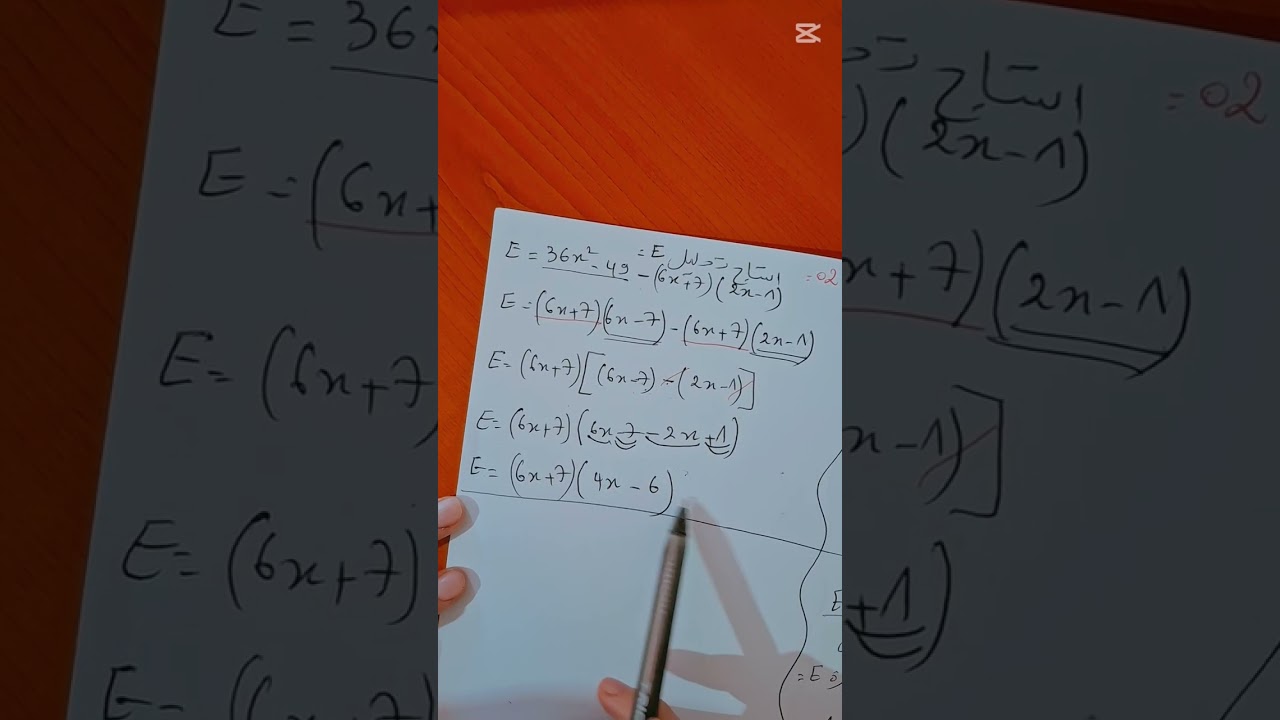 استنتاج تحليل E =
= 02
E = 36x² - 49 - (6x+7)(2x-1)
E = (6x+7)(6x-7) - (6x+7)(2x-1)
E = (6x+7)[(6x-7) - (2x-1)]
E = (6x+7)(6x-7-2x+1)
E = (6x+7)(4x-6)